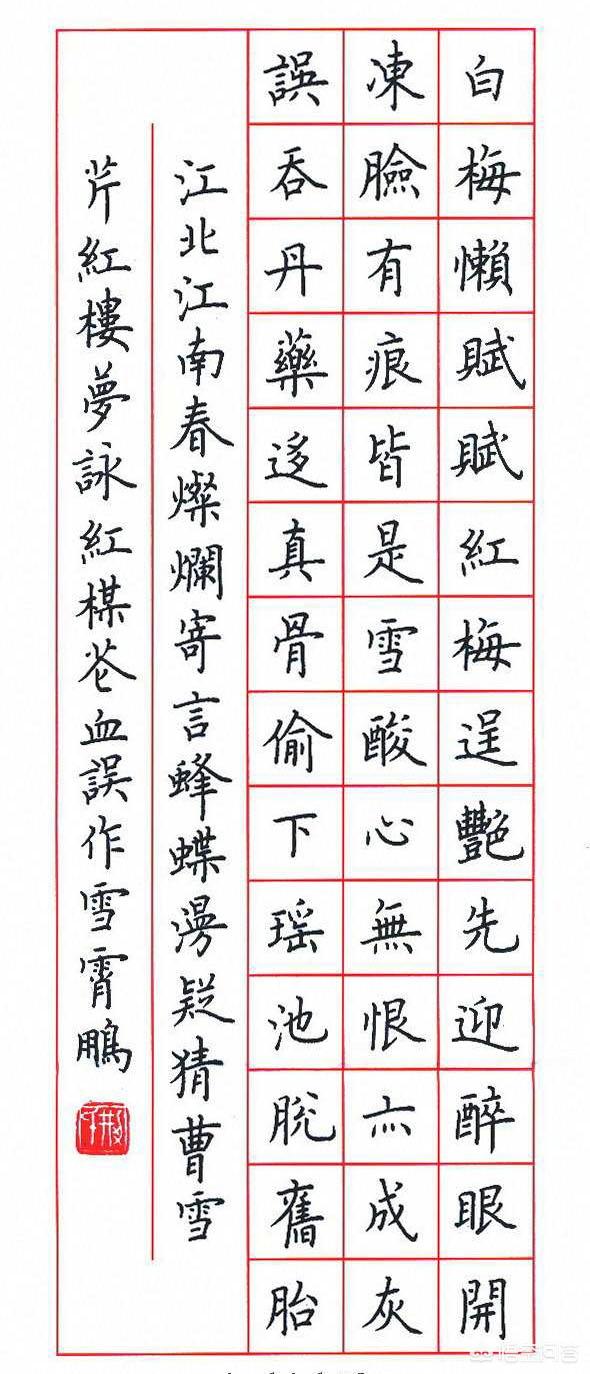 白梅懶賦賦紅梅逞艷先迎醉眼開
凍臉有痕皆是雪酸心無恨亦成灰
誤吞丹藥迻真骨偷下瑶池脱舊胎
江北江南春燦爛寄言蜂蝶漫疑猜曹雪
芹紅樓夢詠紅楳芲血誤作雪霄鵬
悟空问答